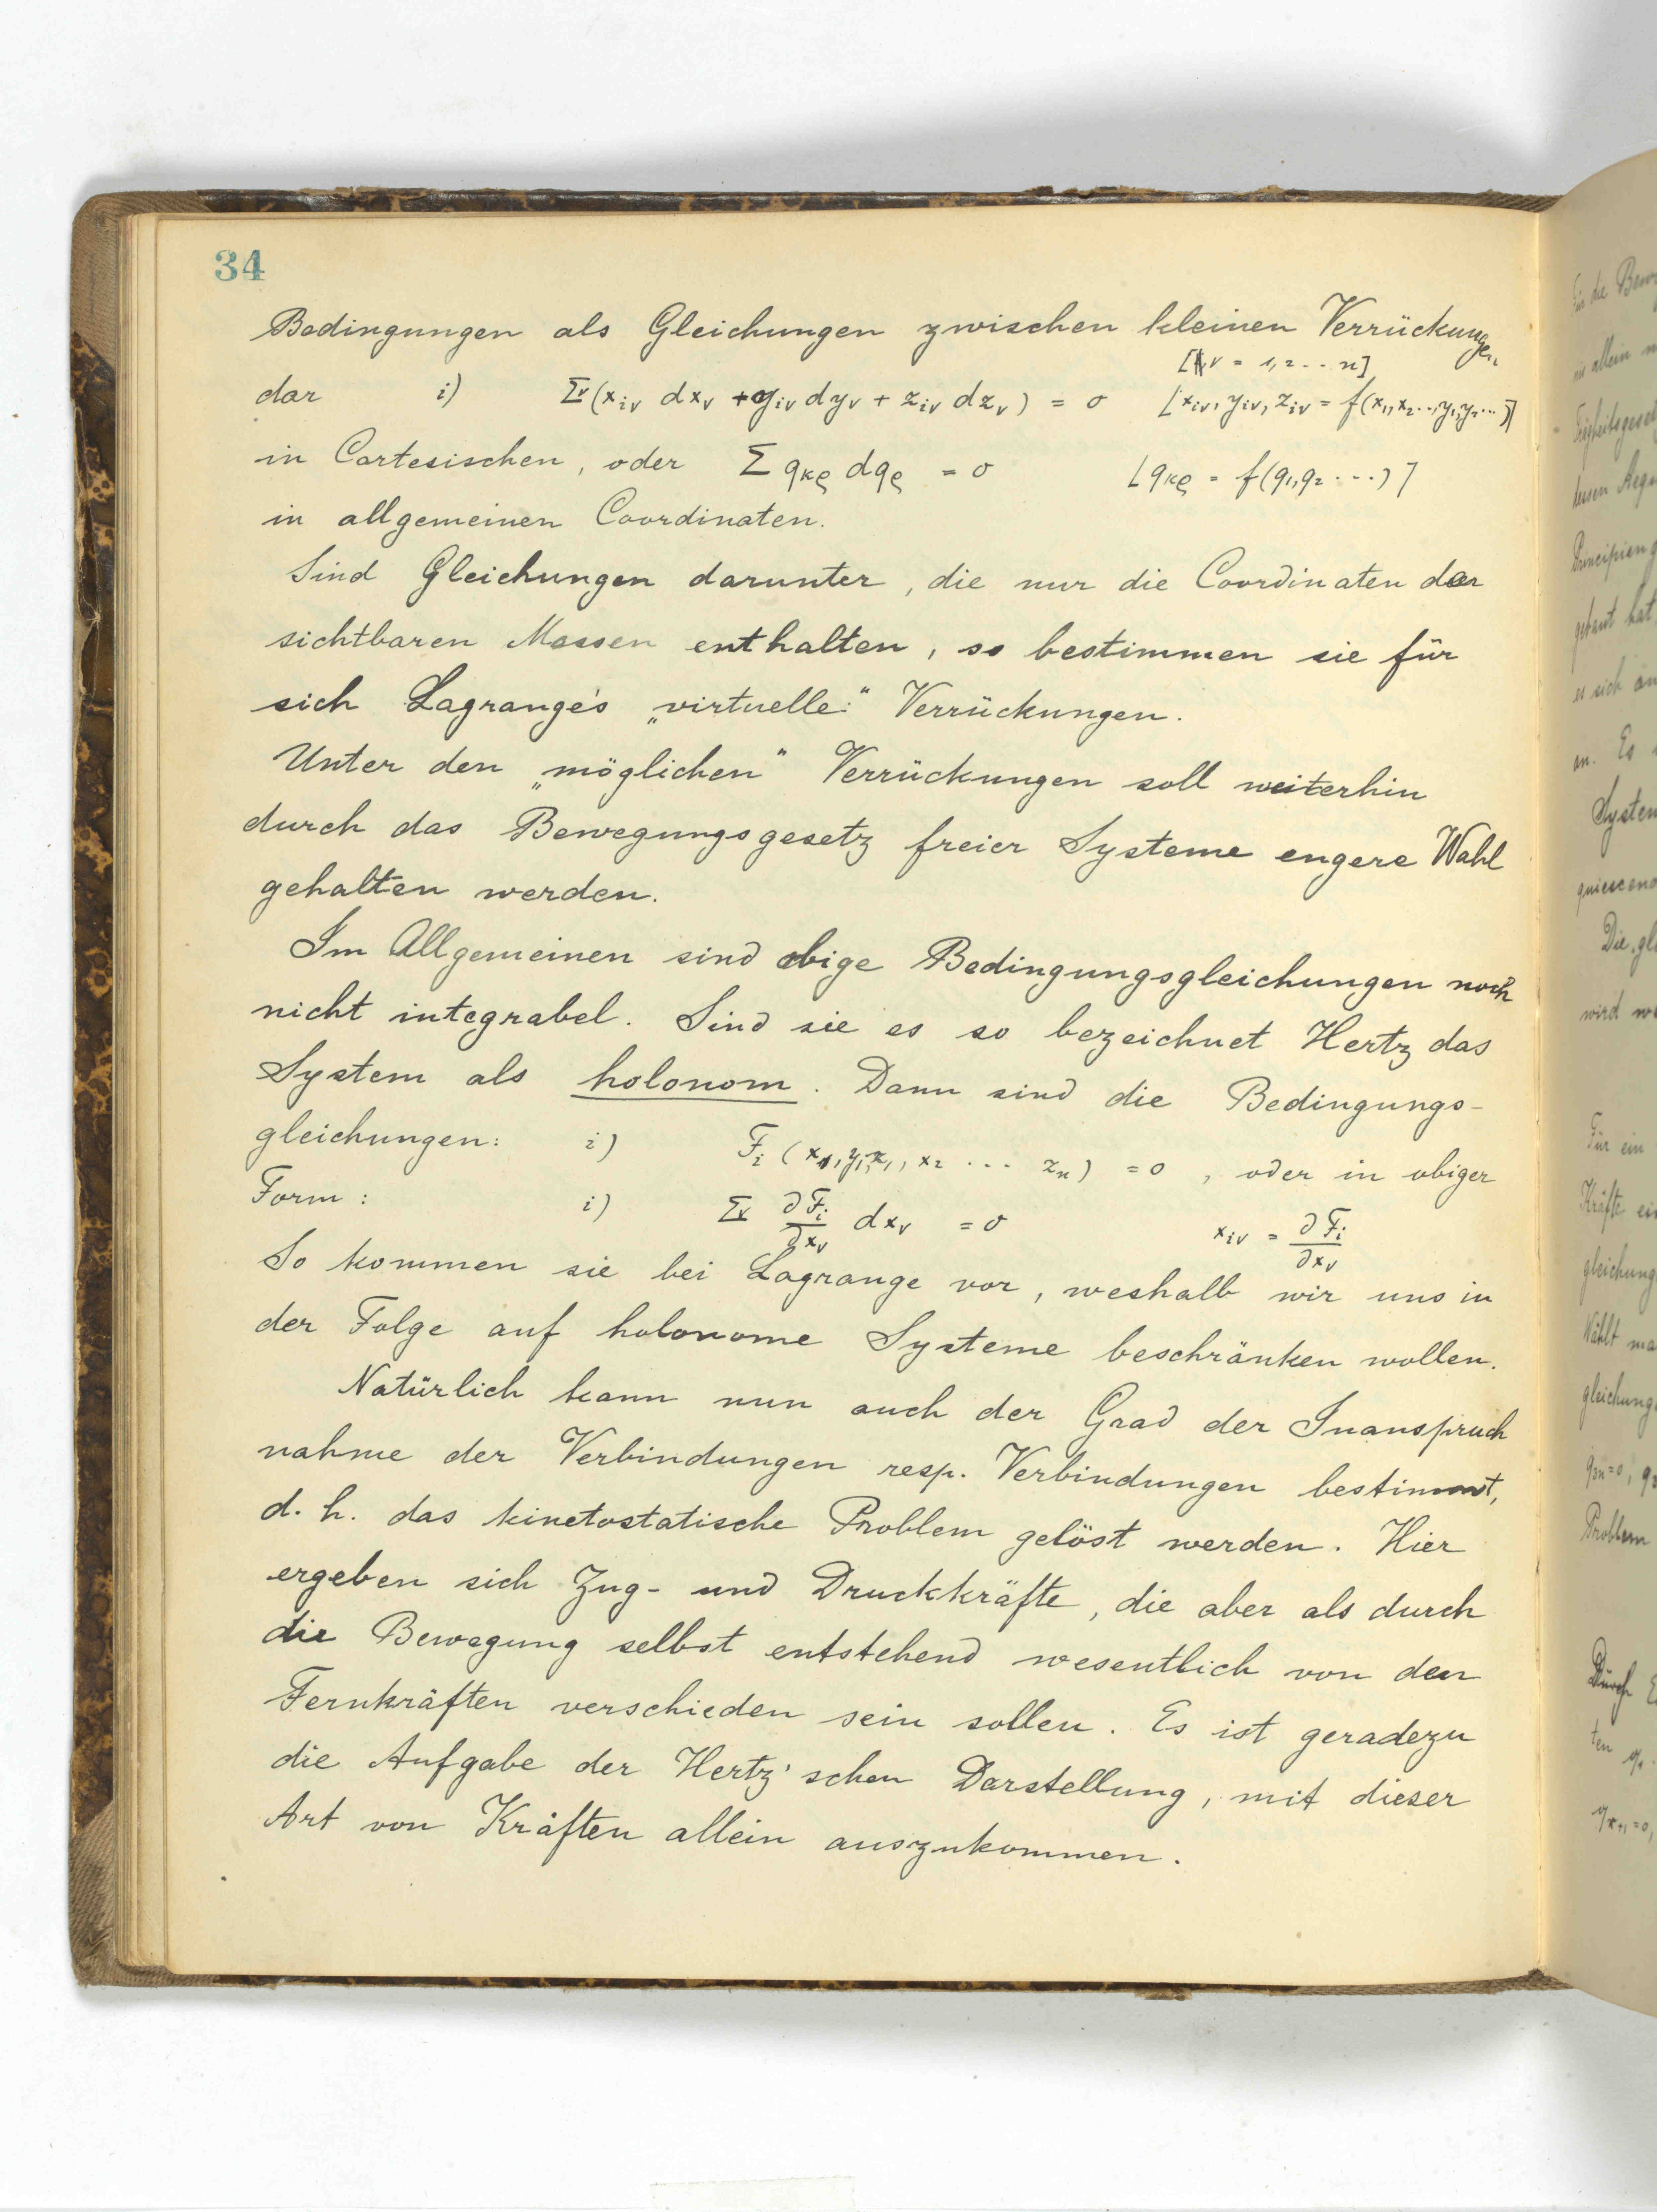 34
Bedingungen als Gleichungen zwischen kleinen Verrückungen
[ν = 1, 2 ... n]
dar i) Σν (x_iν dx_ν + y_iν dy_ν + z_iν dz_ν) = 0 [x_iν, y_iν, z_iν = f(x_1, x_2 ..., y_1, y_2 ...)]
in Cartesischen, oder Σ q_κϱ dq_ϱ = 0 [q_κϱ = f(q_1, q_2 ...)]
in allgemeinen Coordinaten.
Sind Gleichungen darunter, die nur die Coordinaten der
sichtbaren Massen enthalten, so bestimmen sie für
sich Lagrange's „virtuelle“ Verrückungen.
Unter den „möglichen“ Verrückungen soll weiterhin
durch das Bewegungsgesetz freier Systeme engere Wahl
gehalten werden.
Im Allgemeinen sind obige Bedingungsgleichungen noch
nicht integrabel. Sind sie es so bezeichnet Hertz das
System als holonom. Dann sind die Bedingungs-
gleichungen: i) F_i (x_1, y_1, z_1, x_2 ... z_n) = 0, oder in obiger
Form: i) Σν ∂F_i/∂x_ν dx_ν = 0 x_iν = ∂F_i/∂x_ν
So kommen sie bei Lagrange vor, weshalb wir uns in
der Folge auf holonome Systeme beschränken wollen.
Natürlich kann nun auch der Grad der Inanspruch
nahme der Verbindungen resp. Verbindungen bestimmt,
d. h. das kinetostatische Problem gelöst werden. Hier
ergeben sich Zug- und Druckkräfte, die aber als durch
die Bewegung selbst entstehend wesentlich von den
Fernkräften verschieden sein sollen. Es ist geradezu
die Aufgabe der Hertz'schen Darstellung, mit dieser
Art von Kräften allein auszukommen.